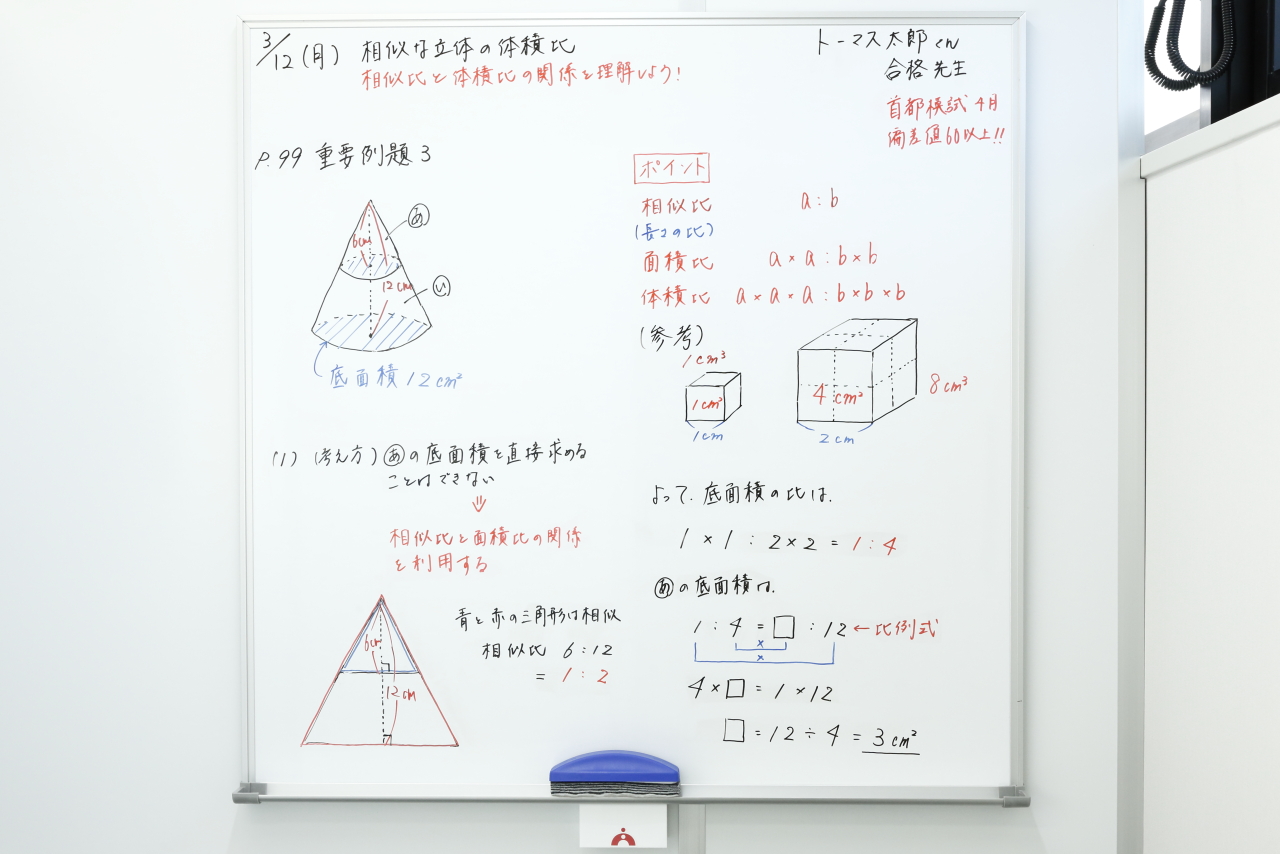 3/12(月) 相似な立体の体積比
相似比と体積比の関係を理解しよう!
トーマス太郎くん
合格先生
首都模試4月
偏差値60以上!!
P.99 重要例題3
あ
6cm
12cm
い
底面積12cm²
(1) (考え方) あの底面積を直接求める
ことはできない
⇓
相似比と面積比の関係
を利用する
6cm
12cm
青と赤の三角形は相似
相似比 6:12
= 1:2
ポイント
相似比 a:b
(長さの比)
面積比 a×a:b×b
体積比 a×a×a:b×b×b
(参考)
1cm³
1cm²
1cm
4cm²
8cm³
2cm
よって、底面積の比は、
1×1:2×2=1:4
あの底面積は、
1:4=□:12←比例式
×
×
4×□=1×12
□=12÷4=3cm²